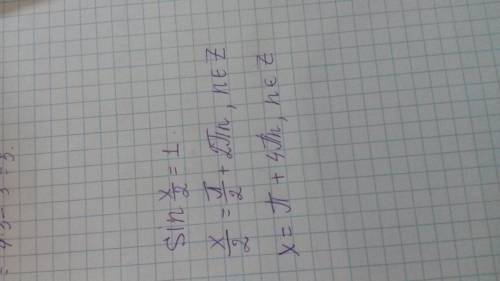 sin x/2 = 1
x/2 = π/2 + 2πn, n∈Z
x = π + 4πn, n∈Z